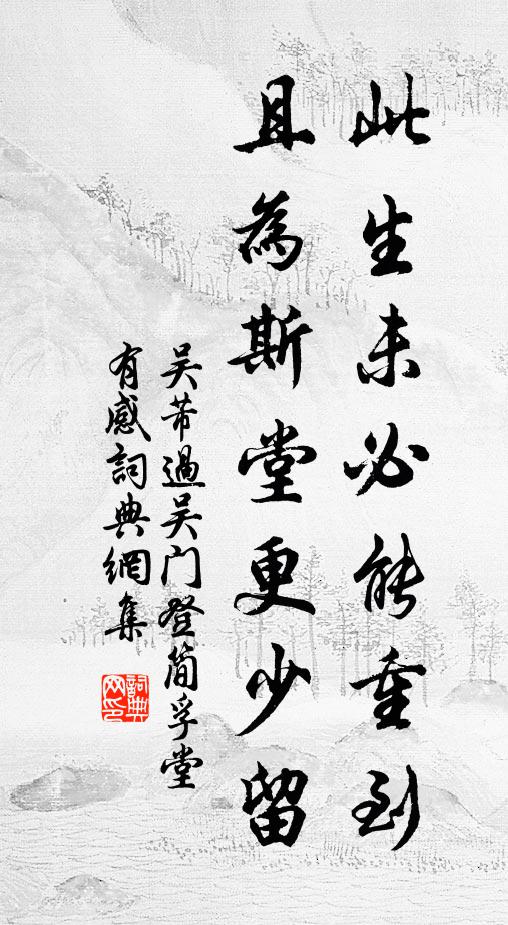 此生未必能重到
且為斯堂更少留
吴芾過吴门登簡孚堂
有感詞典網集
詞典
网印